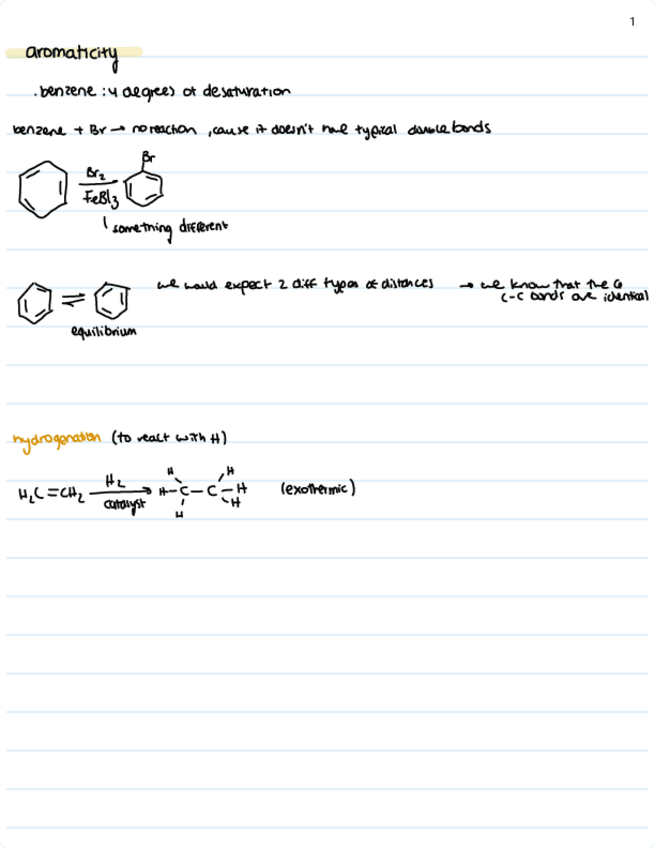 1
aromaticity
. benzene : 4 degrees of desaturation
benzene + Br → no reaction , cause it doesn't have typical double bonds
Br
Br2
FeBr3
something different
we would expect 2 diff types of distances → we know that the 6
C-C bonds are identical
equilibrium
hydrogenation (to react with H)
H2C=CH2 H2 catalyst H-C-C-H (exothermic)
H H
H H